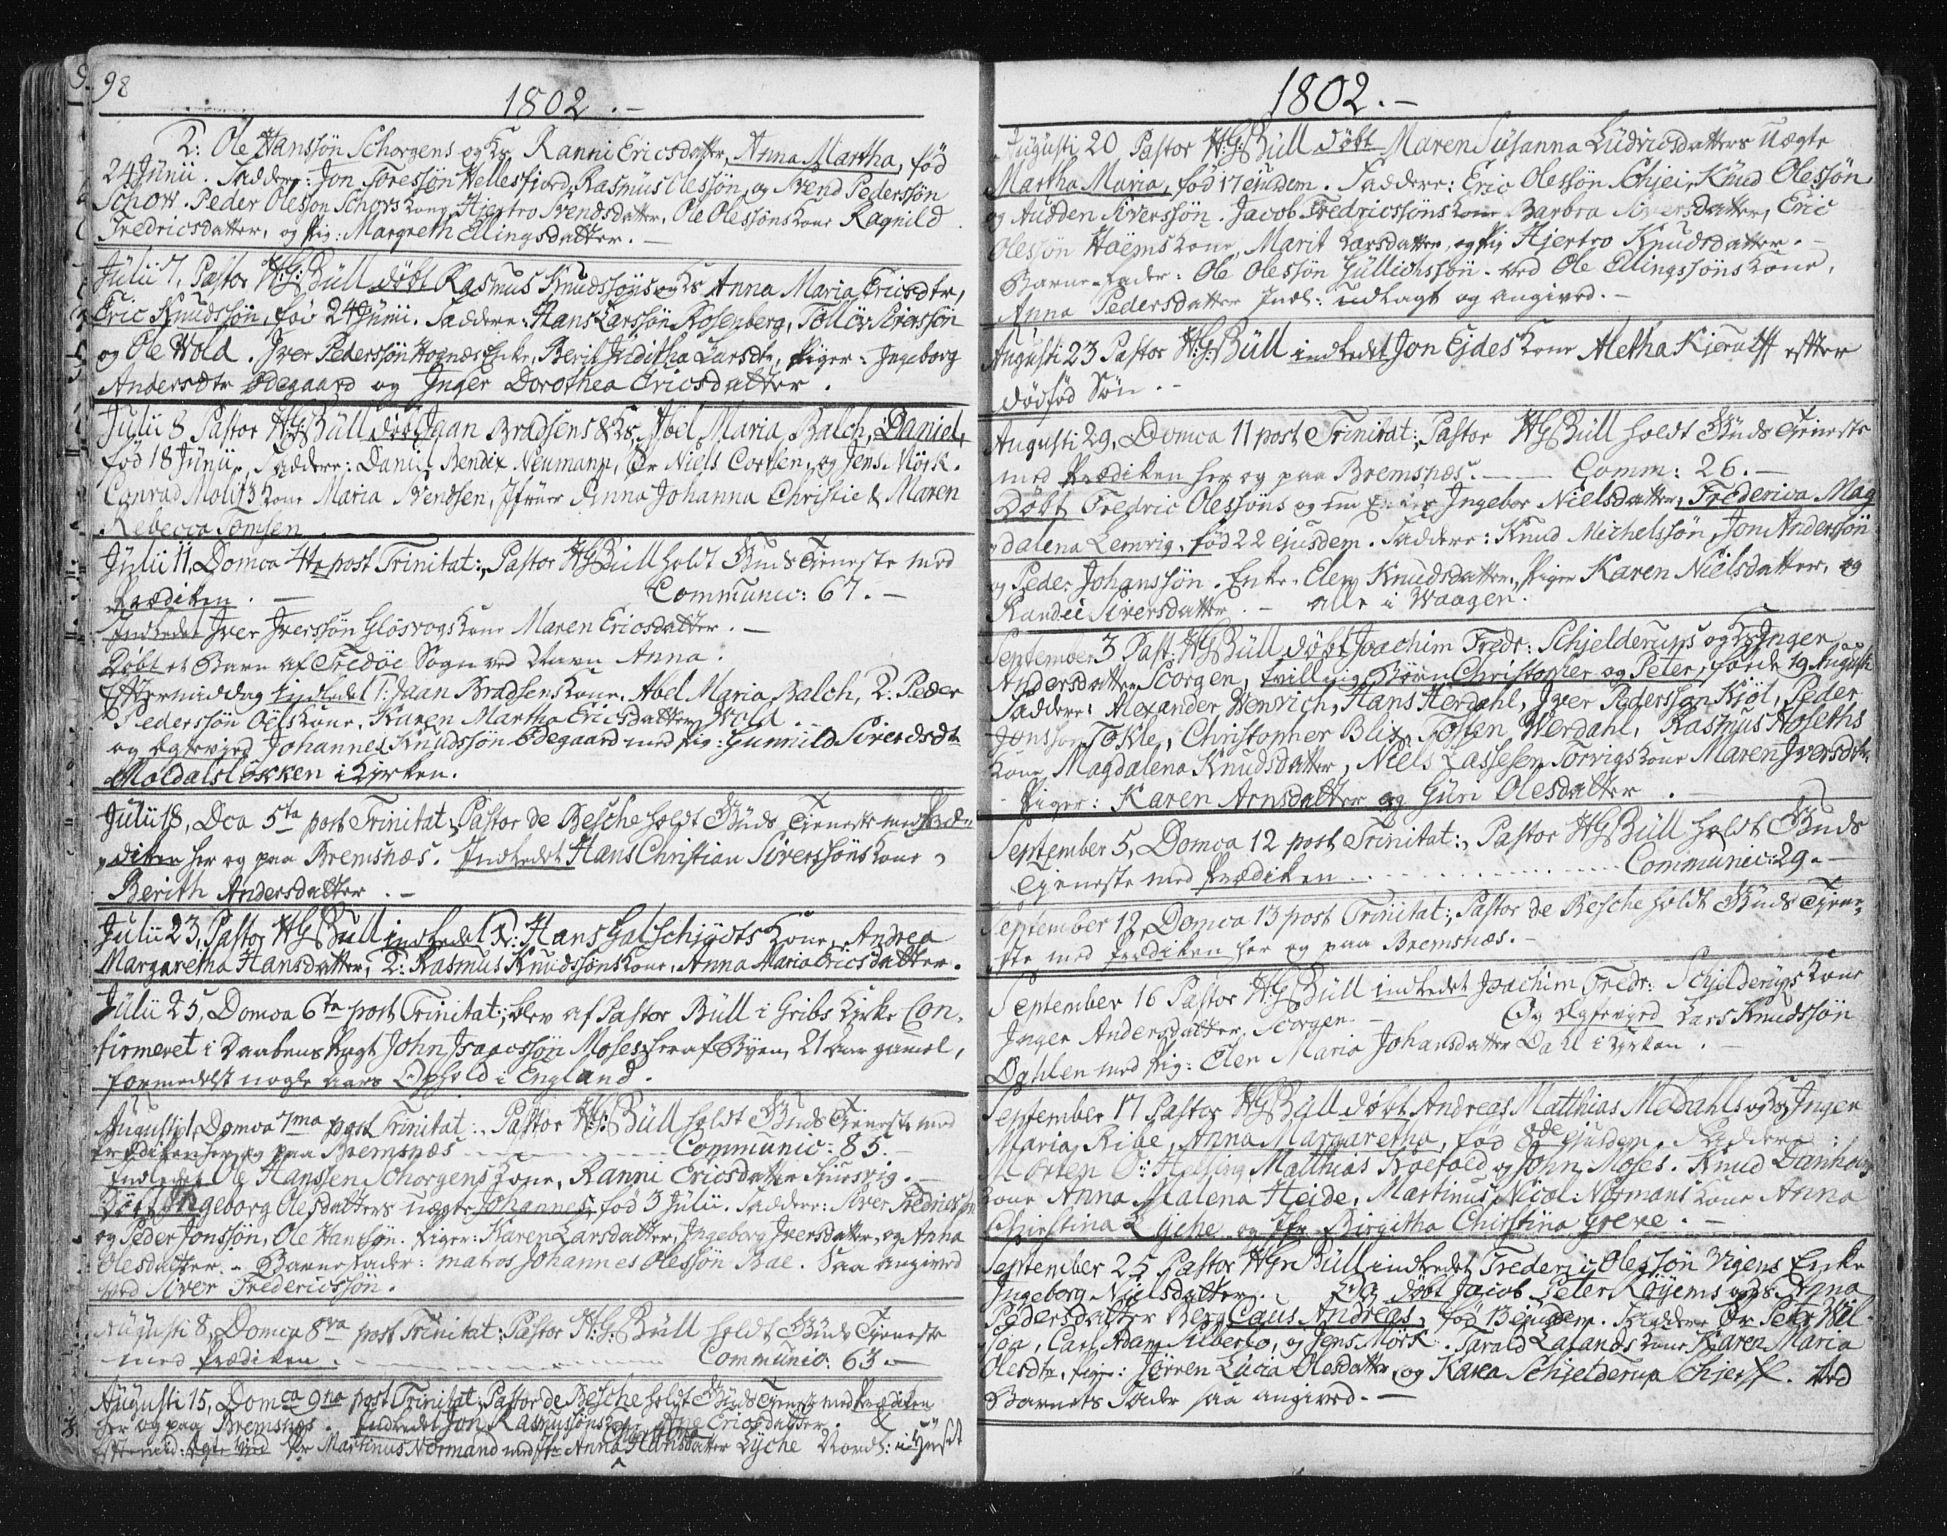 98
1802.-
2: Ole Hanssøn Schorgens og Hs Ranni Ericsdatter, Anna Martha, fød
24 Junii. Faddere: Jon Toressøn Hellesfiord, Rasmus Olessøn, og Svend Pederssøn
Schorv. Peder Olessøn Schors Kone, Hjertro Svendsdatter, Ole Olessøns Kone Ragnild
Fredricsdatter, og Pig: Margreth Ellingsdatter.-
Julii 7, Pastor H:G: Büll døbt Rasmus Knudssøns og Hs Anna Maria Ericsdtr,
Eric Knudssøn, fød 24 Junii. Faddere: Hans Larssøn Rosenberg, Tolløv Siverssøn
og Ole Wold. Iver Pederssøn Hognæs Enke, Berit Juditha Larsdtr, Piger: Ingeborg
Andersdtr Ødegaard og Inger Dorothea Ericsdatter.
Julii 8 Pastor H:G: Büll døbt Jaan Bradsens & Hs Abel Maria Balch, Daniel,
fød 18 Junii. Faddere: Daniel Bendix Neumann, Hr Niels Coersen, og Jens Mörk.
Conrad Moltz's Kone Maria Svendsen, Jfruer Anna Johanna Christie & Maren
Rebecca Semsen.
Julii 11, Domca 4ta post Trinitat:, Pastor HG Büll holdt Guds Tjeneste med
Prædiken. - Communic: 67.-
Indledet Iver Iverssøn Glosvogs Kone Maren Ericsdatter.-
Døbt et Barn af Fredøe Sogn ved Navn Anna.
Eftermiddag indledet 1: Jaan Bradsens Kone, Abel Maria Balch, 2: Peder
Pederssøn Öels Kone, Karen Martha Ericsdatter Wold.-
og Egteviet Johannes Knudssøn Ødegaard med Pig: Gunnild Siverdsdtr
Moldalsløkken i Kirken.
Julii 18, Dca 5ta post Trinitat, Pastor de Besche holdt Guds Tjeneste med Præ-
diken her og paa Bremsnæs. Indledet Hans Christian Siverssøns Kone,
Berith Andersdatter.-
Julii 23, Pastor HG Büll indledet 1: Hans Galschjødts Kone, Andrea
Margaretha Hansdatter, 2: Rasmus Knudssøns Kone, Anna Maria Ericsdatter.
Julii 25, Domca 6ta post Trinitat:, blev af Pastor Büll i Gribs Kirke Con-
firmeret i Daabens Pagt John Isaacssøn Moses, her af Byen, 21 Aar gamel,
formedelst nogle Aars Ophold i England.
Augusti 1, Domca 7ma post Trinitat:, Pastor H:G: Büll holdt Guds Tjeneste med
Prædiken her og paa Bremsnæs - Communic: 85.-
Indledet Ole Hanssen Schorgens Kone, Ranni Ericsdatter
Døbt Ingeborg Olesdatters uægte Johannes, fød 3 Julii. Faddere: Siver Fredricssøn
og Peder Jonssøn, Ole Hanssøn. Piger: Karen Larsdatter, Ingeborg Iversdatter, og Anna
Olesdatter.- Barnefader: matros Johannes Olessøn Bae. Saa angived
ved Siver Fredericssøn.
Augusti 8, Domca 8va post Trinitat: Pastor H:G: Büll holdt Guds Tjeneste
med Prædiken. - Communic: 63.-
Augusti 15, Domca 9na post Trinitat: Pastor de Besche holdt Guds Tjeneste med Prædiken
her og paa Bremsnæs. Indledet Jon Rasmussøns Kone Ane Ericsdatter. &
Eftermid: Egte Vied Hr Martinus Normand med Jfr Anna Christina Hansdatter Lyche Nordl: i Huset
1802.-
Augusti 20 Pastor H:G: Büll døbt Maren Susanna Ludvicsdatters Uægte
Martha Maria, fød 17 ejusdem. Faddere: Eric Olessøn Schjei, Knud Olessøn
og Audden Siverssøn. Jacob Fredricssøns Kone Barbra Siversdatter, Eric
Olessøn Hoëms Kone, Marit Larsdatter, og Pig Hjertro Knudsdatter.-
Barne-Fader: Ole Olessøn Gullichssøn. ved Ole Ellingssøns Kone,
Anna Pedersdatter Indl: udlagt og angived.-
Augusti 23 Pastor H:G: Büll indledet Jon Ejdes Kone Aletha Kjerulff efter
dødfød Søn.-
Augusti 29, Domca 11 post Trinitat:, Pastor HG Büll holdt Guds Tjeneste
med Prædiken her og paa Bremsnæs. - Comm: 26.-
Døbt Fredric Olessøns og nu Enke Ingebor Nielsdatter, Frederica Mag-
dalena Lemvig, fød 22 ejusdem. Faddere: Knud Michelssøn, Jon Anderssøn
og Peder Johanssøn. Enke Elen Knudsdatter, Piger Karen Nielsdatter, og
Randi Siversdatter.- alle i Waagen.
September 3 Past: HG Büll døbt Joachim Fredr: Schjelderups og Hs Inger
Andersdatter Scorgen, tvilling Børn Christopher og Peter, fødde 19 Augusti
Faddere: Alexander Henrich, Hans Herdahl, Iver Pederssøn Kjöl, Peder
Jonssøn Tokle, Christopher Blix, Tosten Werdahl, Rasmus Hoseths
Kone Magdalena Knudsdatter, Niels Lassesen Torvigs Kone Maren Iversdtr.
Piger: Karen Arnsdatter og Guri Olesdatter.-
September 5, Domca 12 post Trinitat:, Pastor HG Büll holdt Guds
Tjeneste med Prædiken. - Communic: 29.-
September 12, Domca 13 post Trinitat:, Pastor de Besche holdt Guds Tjene-
ste med Prædiken her og paa Bremsnæs.-
September 16 Pastor H:G: Büll indledet Joachim Fredr: Schjelderups Kone
Inger Andersdatter Scorgen.- Og Egtevied Lars Knudssøn
Dahlen med Pig: Elen Maria Johansdatter Dahl i Kirken.-
September 17 Pastor HG Büll døbt Andreas Matthias Medahls og Hs Inger
Maria Ribe, Anna Margaretha, fød 8de ejusdem. Faddere:
Morten Helsing, Matthias Koefold og John Moses. Knud Danholms
Kone Anna Malena Heide, Martinus Nicol: Normans Kone Anna
Christina Lyche og Jfr Birgitha Chirstina Greve.-
September 25 Pastor HG Büll indledet Frederic Olessøn Vigens Enke
Ingeborg Nielsdatter.- Og døbt Jacob Peter Røyems og Hs Anna
Pedersdatter Berg Caus Andreas, fød 13 ejusdem. Faddere Hr Peter Wil-
son, Carl Adam Alberto, og Jens Mörk. Tarald Lalands Kone Karen Maria
Olesdtr, Pige: Jørren Lucia Olesdatter, og Karen Schjelderup Schjerff. Ved
Barnets Fader saa angived.-